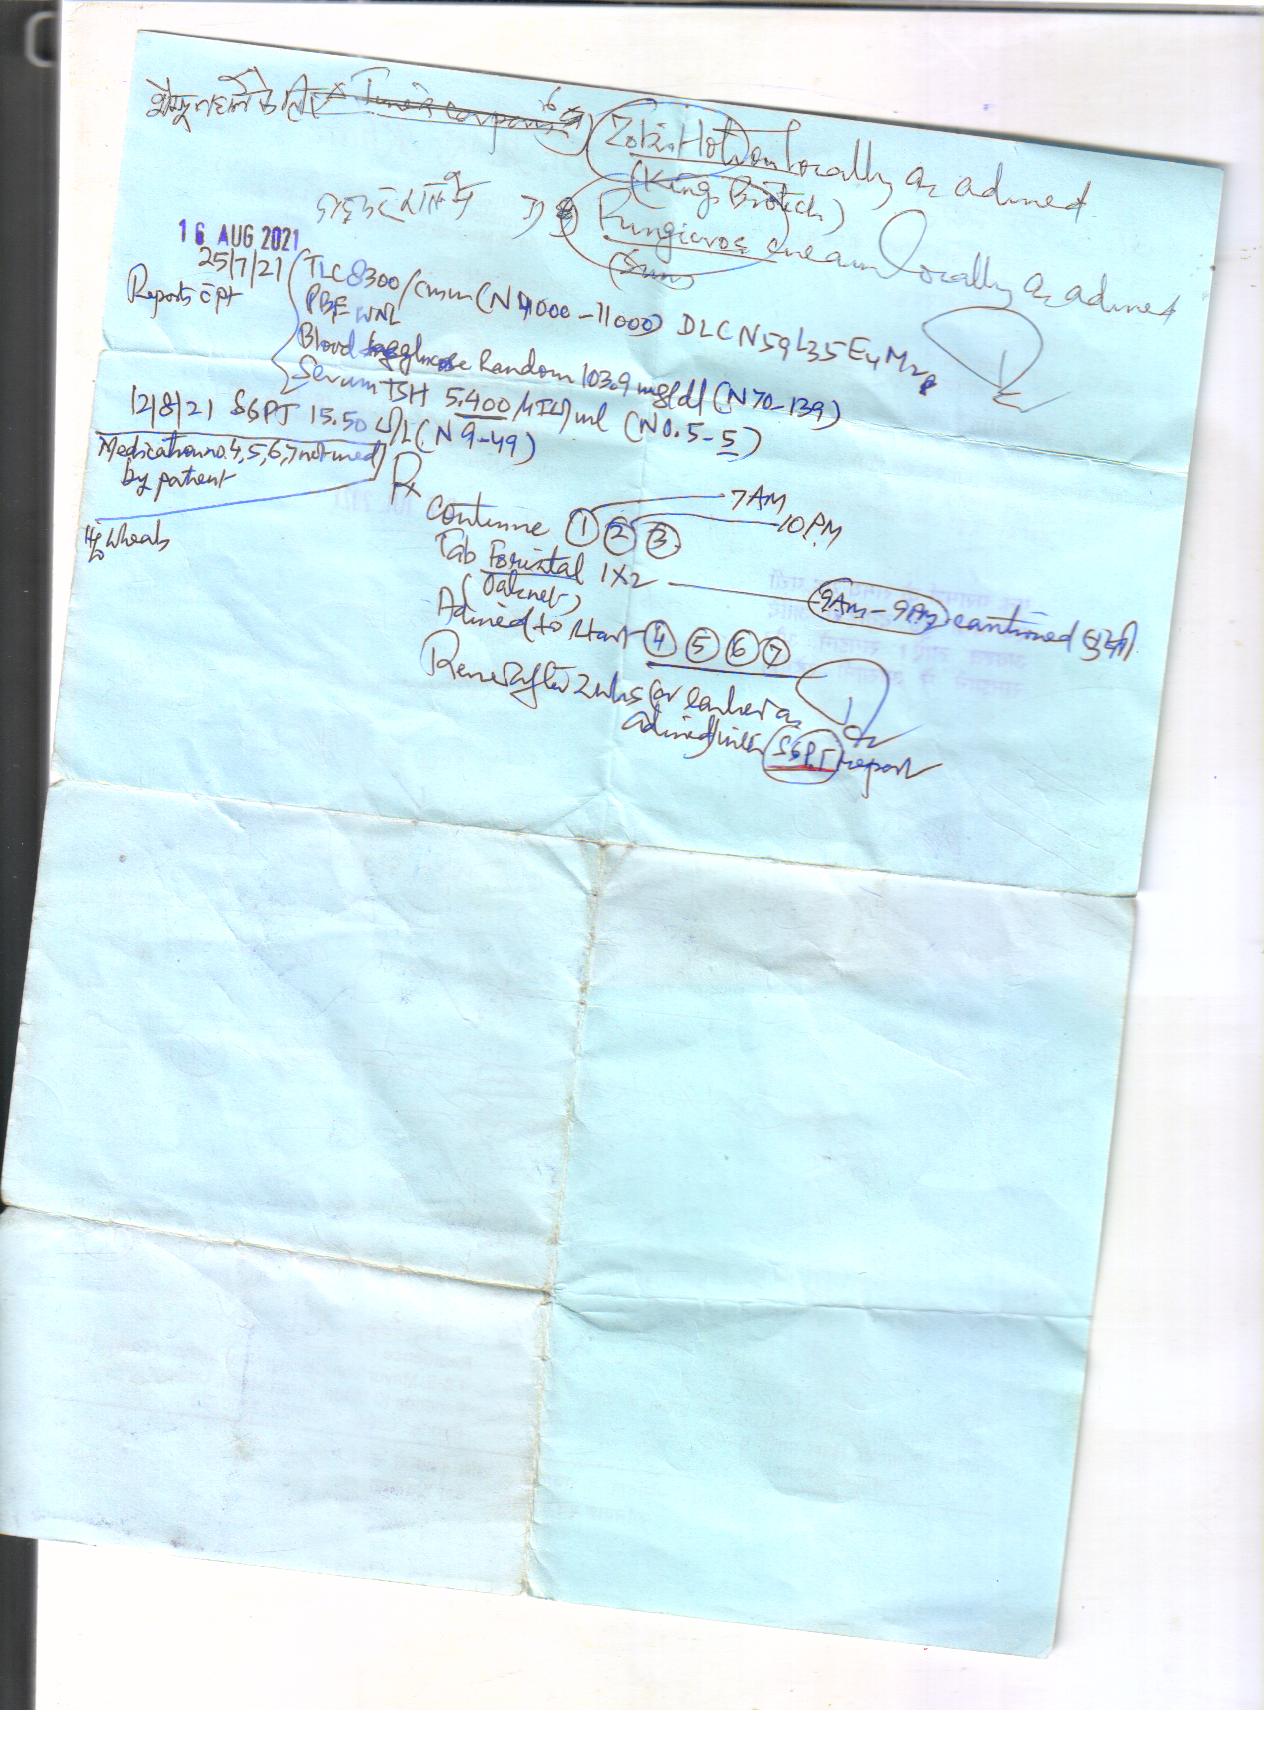 6) Zobi-Hot on locally as advised
(King Biotech)
7) Fungicros cream locally as advised
(Sun)
16 AUG 2021
25/7/21 TLC 8300/cmm (N 4000-11000) DLC N59 L35 E4 M2
Reports c pt
PBF WNL
Blood glucose Random 103.9 mg/dl (N 70-139)
Serum TSH 5.400 µIU/ml (N 0.5-5)
12/8/21 SGPT 15.50 U/L (N 9-49)
Medication no. 4,5,6,7 not used
by patient
Rx
H/o Wheals
Continue ① ② ③ 7AM
10PM
Tab Foristal 1X2 9AM-9PM cautioned
(Oaknet)
Advised to start ④ ⑤ ⑥ ⑦
Review after 2 wks or earlier as
advised with SGPT report